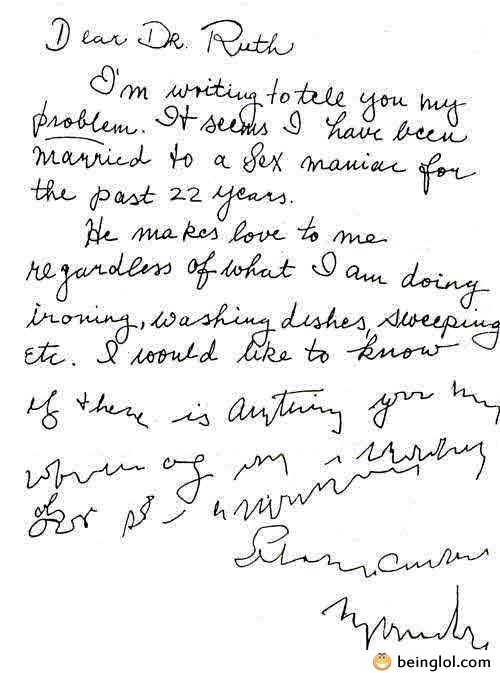 Dear Dr. Ruth
I'm writing to tell you my
problem. It seems I have been
married to a sex maniac for
the past 22 years.
He makes love to me
regardless of what I am doing
ironing, washing dishes, sweeping
etc. I would like to know
if there is anything you
beinglol.com